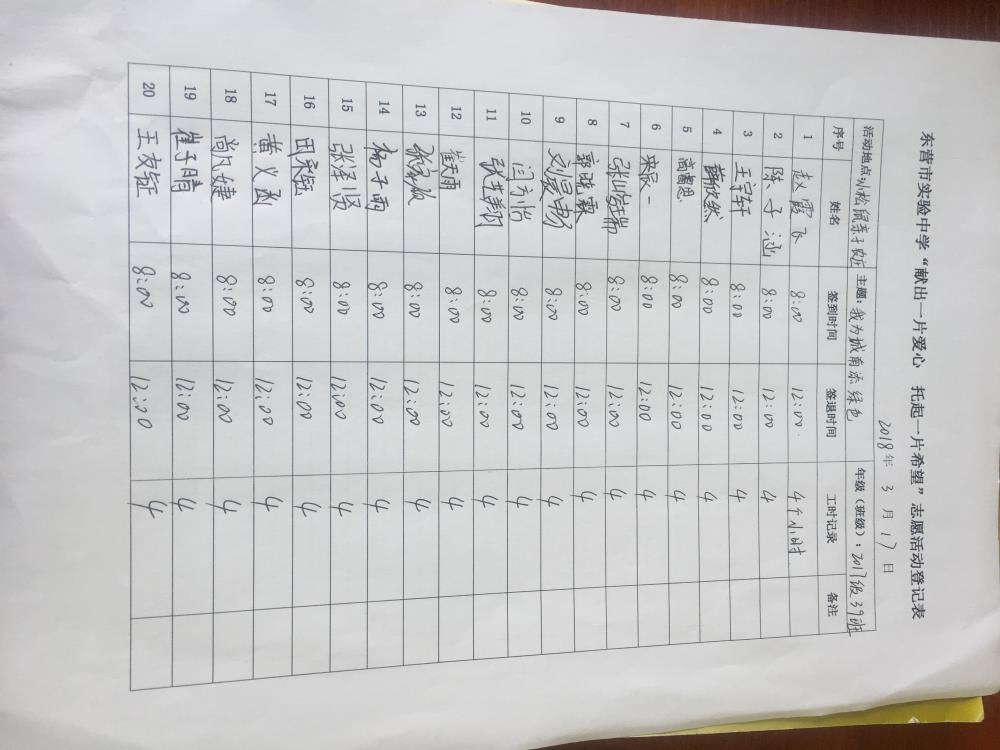 东营市实验中学“献出一片爱心 托起一片希望”志愿活动登记表
2018年 3 月 17 日
活动地点:小松鼠亲子农庄 主题:我为城南添绿色 年级(班级):2017级39班
序号 姓名 签到时间 签退时间 工时记录 备注
1 赵霞飞 8:00 12:00 4个小时
2 陈子涵 8:00 12:00 4
3 王宇轩 8:00 12:00 4
4 薛欣然 8:00 12:00 4
5 8:00 12:00 4
6 宋辰一 8:00 12:00 4
7 8:00 12:00 4
8 郭晓霖 8:00 12:00 4
9 刘昊旸 8:00 12:00 4
10 闫方怡 8:00 12:00 4
11 8:00 12:00 4
12 崔天雨 8:00 12:00 4
13 8:00 12:00 4
14 杨子雨 8:00 12:00 4
15 张泽贤 8:00 12:00 4
16 8:00 12:00 4
17 黄义函 8:00 12:00 4
18 尚凡婕 8:00 12:00 4
19 崔子晴 8:00 12:00 4
20 王友钰 8:00 12:00 4